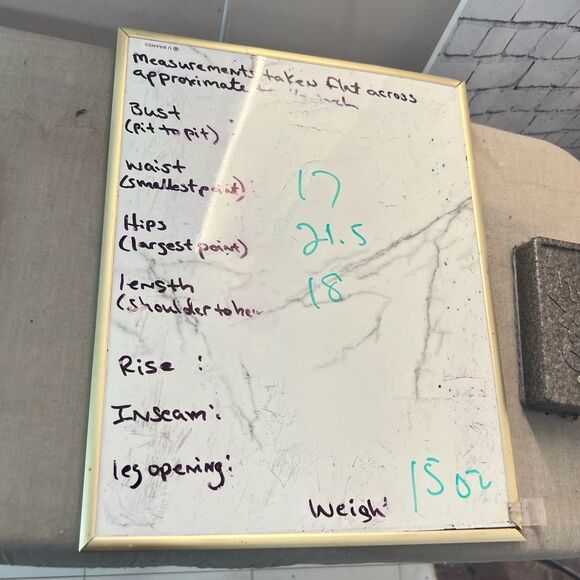 U BRANDS
Measurements taken flat across
approximate inch
Bust
(pit to pit) :
waist
(smallest point) : 17
Hips
(largest point) 21.5
length
(shoulder to hem 18
Rise :
Inseam:
leg opening:
Weigh 15 oz